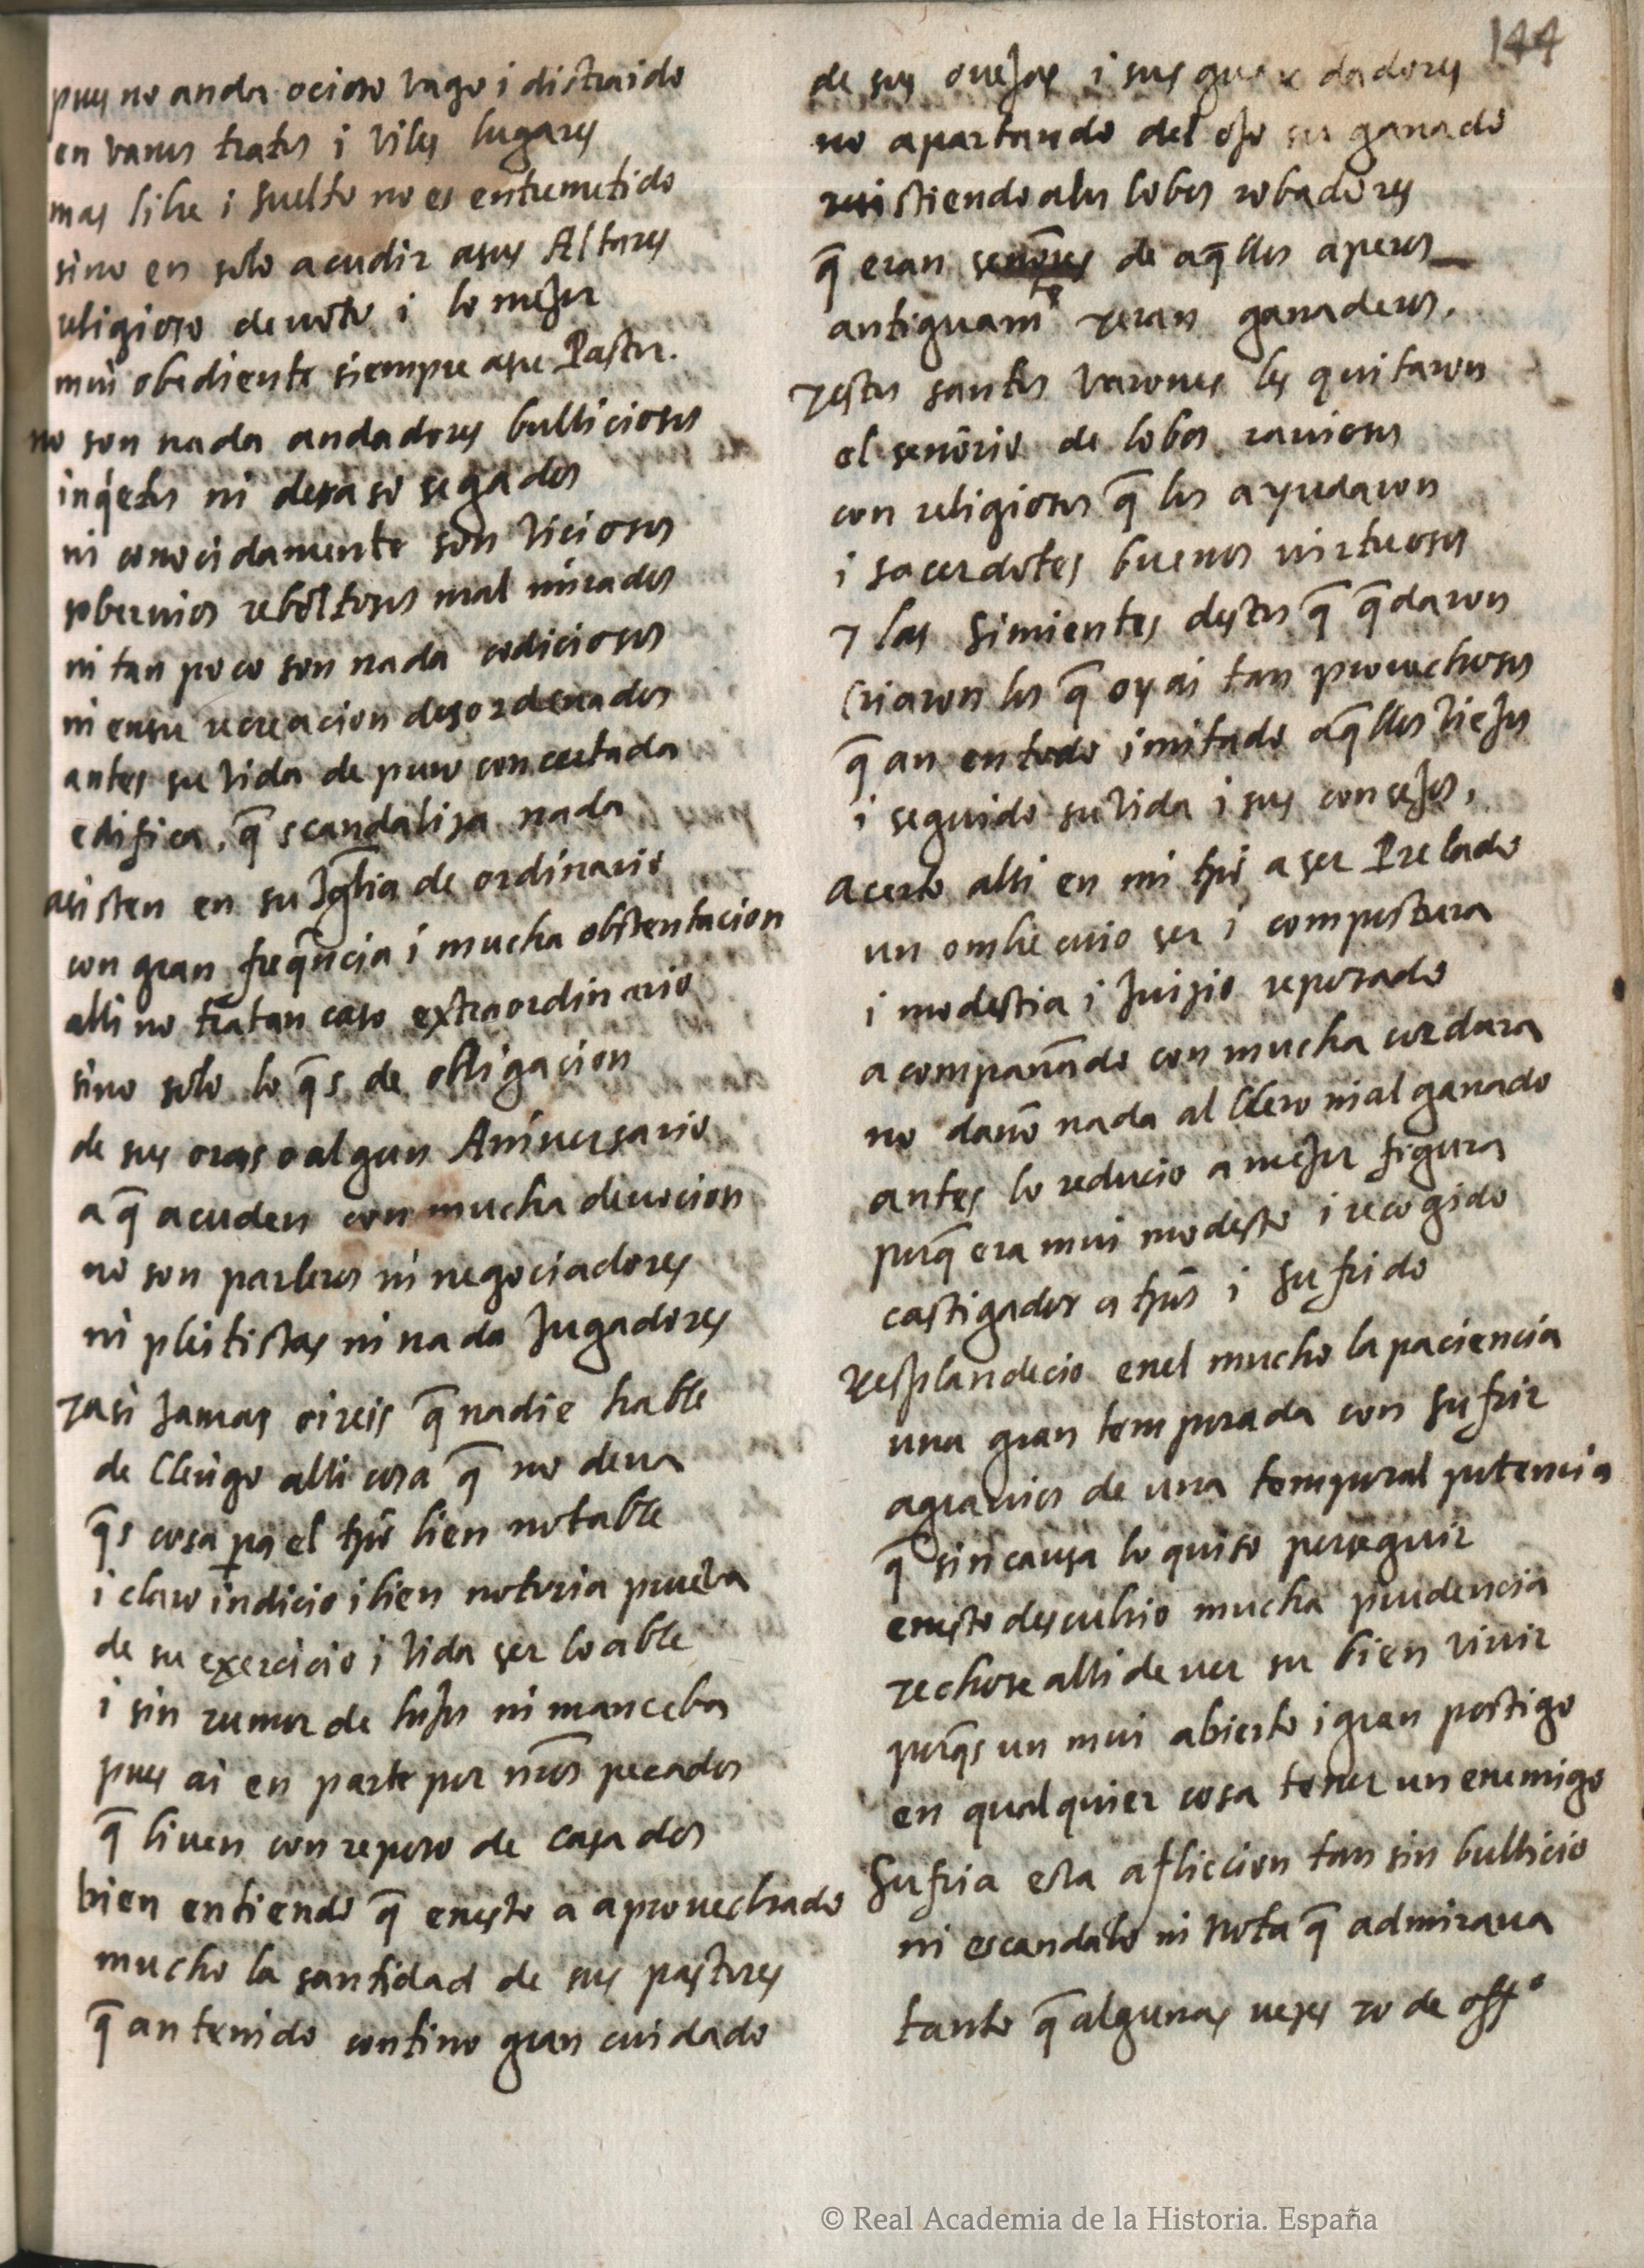 144
pues no anda ocioso vago i distraido
en vanos tratos i viles lugares
mas libre i suelto no es entremetido
sino en solo acudir a sus Altares
religioso deuoto i lo mejor
mui obediente siempre a su Pastor.
no son nada andadores bulliciosos
inq̃etos ni desasosegados
ni conocidamente son viciosos
sobervios reboltosos mal mirados
ni tan poco son nada codiciosos
ni en su recreacion desordenados
antes su vida de puro concertada
edifica, q̃ scandaliza nada
asisten en su Iglia de ordinario
con gran freq̃ncia i mucha obstentacion
alli no tratan caso extraordinario
sino solo lo q̃s de obligacion
de sus oras o algun Aniuersario
a q̃ acuden con mucha deuocion
no son parleros ni negociadores
ni pleitistas ni nada Jugadores
y asi Jamas oireis q̃ nadie hable
de Clerigo alli cosa q̃ no deua
q̃s cosa pa el tpõ bien notable
i claro indicio i bien notoria prueba
de su exercicio i vida ser loable
i sin rumor de hijos ni manceba
pues ai en parte por nr̃os pecados
q̃ biuen con reposo de casados
bien entiendo q̃ enesto a aprouechado
mucho la santidad de sus pastores
q̃ an tenido contino gran cuidado
de sus ouejas i sus guardadores
no apartando del ojo su ganado
resistiendo a los lobos robadores
q̃ eran señores de aq̃llos aperos
antiguamte y eran ganaderos.
y estos santos varones les quitaron
el señorio de lobos rauiosos
con religiosos q̃ los ayudaron
i sacerdotes buenos uirtuosos
y las simientes destos q̃ q̃daron
Criaron los q̃ oy ai tan prouechosos
q̃ an en todo imitado aq̃llos viejos
i seguido su vida i sus consejos,
acerto alli en mi tpõ a ser Prelado
un ombre cuio ser i compostura
i modestia i Juizio reposado
acompañando con mucha cordura
no dañó nada al Clero ni al ganado
antes lo reducio a mejor figura
porq̃ era mui modesto i recogido
castigador a tpõs i sufrido
resplandecio enel mucho la paciencia
una gran temporada con sufrir
agrauios de una temporal potencia
q̃ sin causa lo quiso perseguir
enesto descubrio mucha prudencia
y echose alli de uer su bien viuir
porq̃s un mui abierto i gran postigo
en qualquier cosa tener un enemigo
Sufria esta afliccion tan sin bullicio
ni escandalo ni nota q̃ admiraua
tanto q̃ algunas uezes yo de offº
© Real Academia de la Historia. España